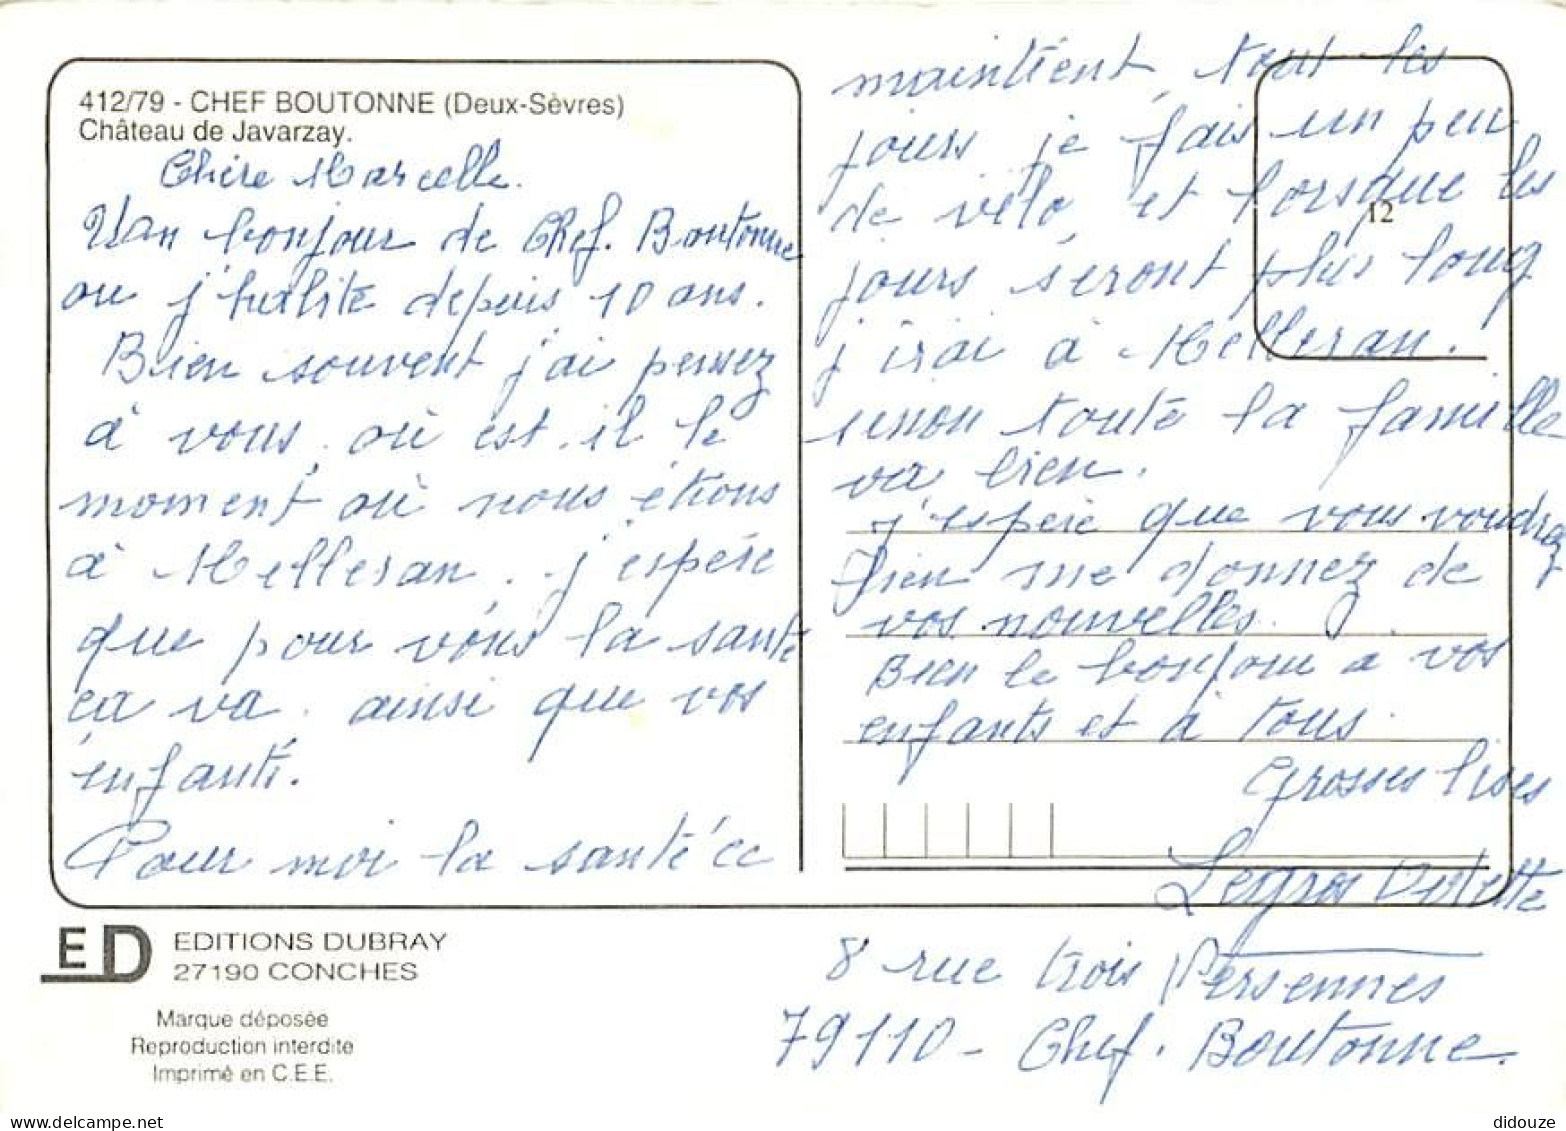 412/79 - CHEF BOUTONNE (Deux-Sèvres)
Château de Javarzay.
Chère Marcelle.
Un bonjour de Chef. Boutonne
ou j'habite depuis 10 ans.
Bien souvent j'ai pensez
à vous, où est il le
moment où nous étions
à Melleran. j'espére
que pour vous la santé
ça va. ainsi que vos
enfants.
Pour moi la santé ce
maintient, tout les
jours je fais un peu
de vélo, et lorsque les
jours séront plus long
j'irai à Melleran.
sinon touté la famille
va bien.
j'espére que vous voudrez
bien me donnez de
vos nouvelles.
Bien le bonjour a vos
enfants et à tous.
Grosses bises
Legros
8 rue trois Persennes
79110 - Chef. Boutonne.
12
ED
EDITIONS DUBRAY
27190 CONCHES
Marque déposée
Reproduction interdite
Imprimé en C.E.E.
didouze